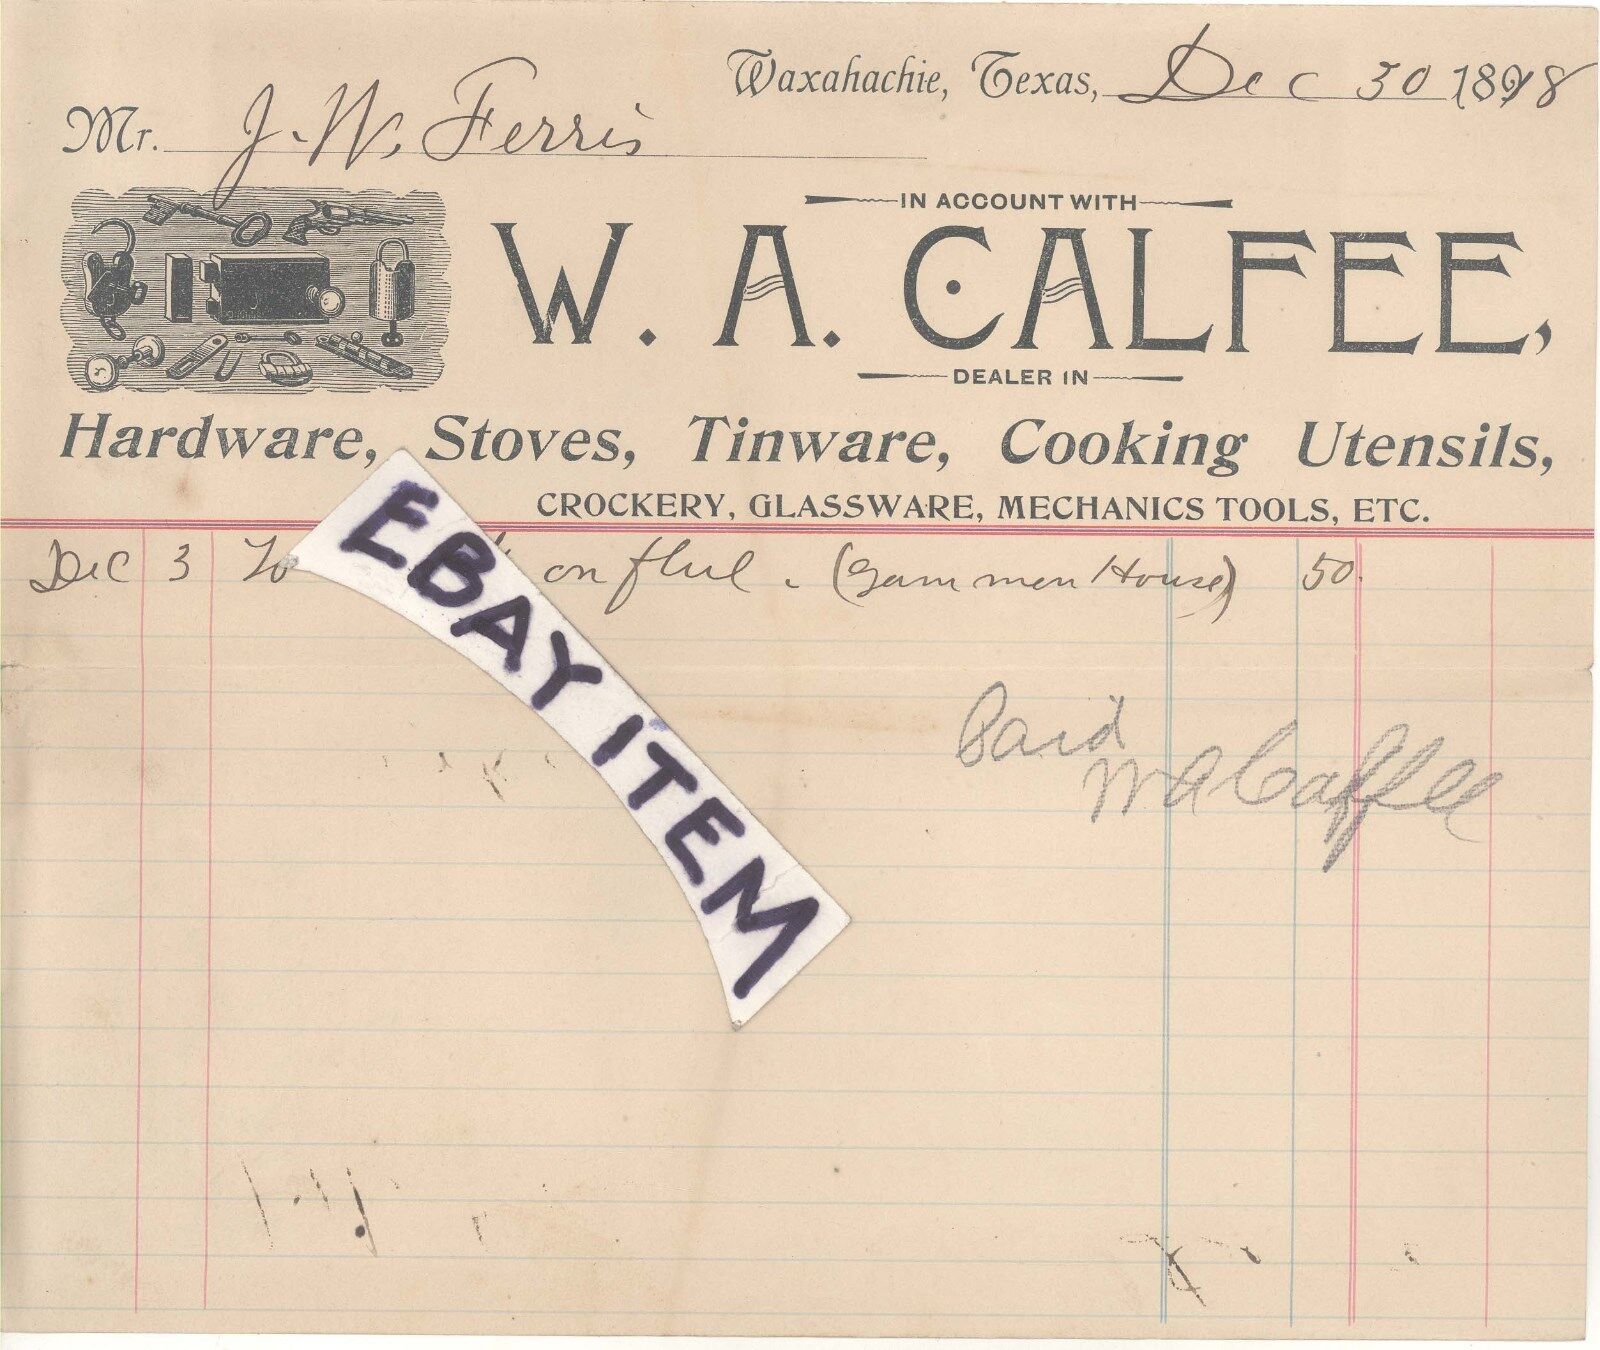 Waxahachie, Texas, Dec 30 1898
Mr. J. W. Ferris
IN ACCOUNT WITH
W. A. CALFEE,
DEALER IN
Hardware, Stoves, Tinware, Cooking Utensils,
CROCKERY, GLASSWARE, MECHANICS TOOLS, ETC.
Dec 3 To on flue. (Gammon House) 50
EBAY ITEM
Paid
W A Calfee